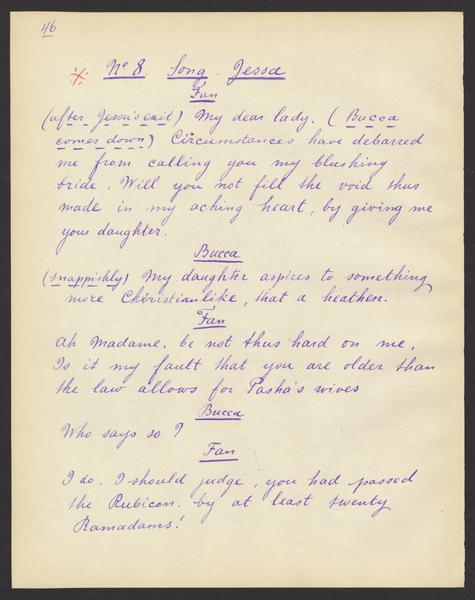 46
No 8. Song. Jessa
Fan
(after Jessa's exit) My dear lady. (Bucca
comes down) Circumstances have debarred
me from calling you my blushing
bride. Will you not fill the void thus
made in my aching heart, by giving me
your daughter.
Bucca
(snappishly) My daughter aspires to something
more Christianlike, that a heathen.
Fan
Ah Madame. be not thus hard on me.
Is it my fault that you are older than
the law allows for Pasha's wives
Bucca
Who says so?
Fan
I do. I should judge, you had passed
the Rubicon. by at least twenty
Ramadams!